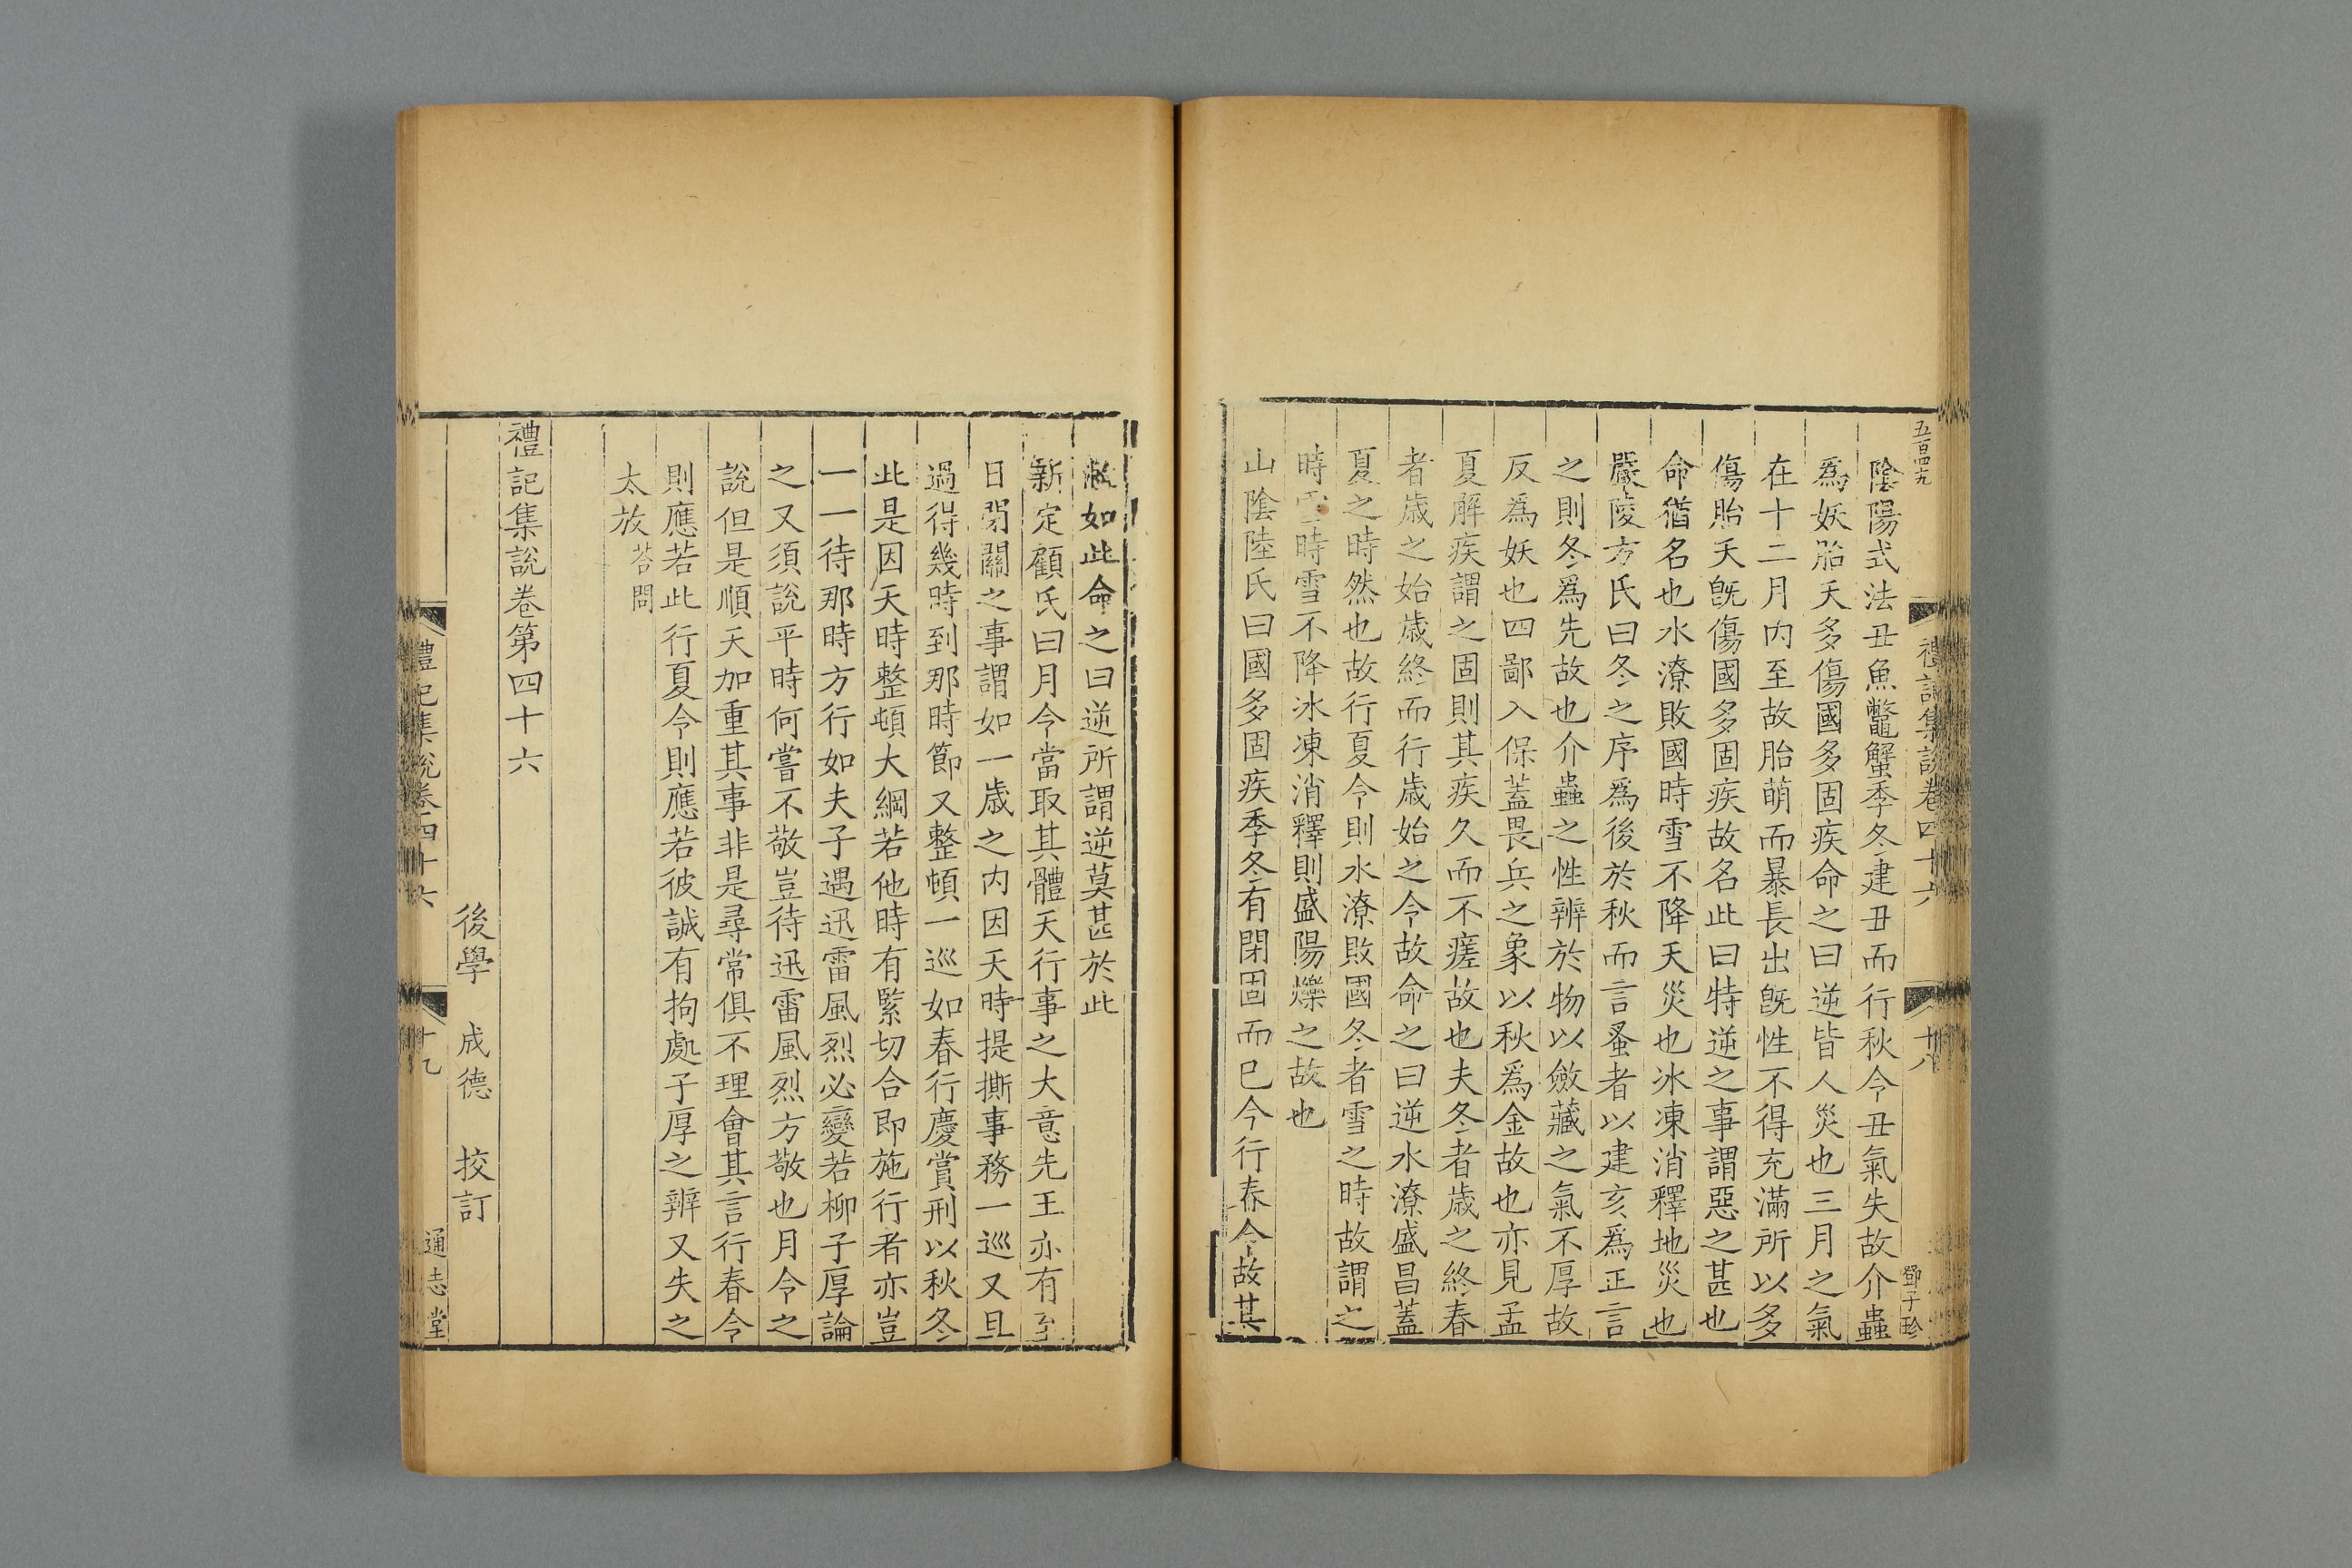 五百四九
禮記集說卷四十六
十八
鄧子珍
陰陽式法丑魚鼈蟹季冬建丑而行秋令丑氣失故介蟲
爲妖胎夭多傷國多固疾命之曰逆皆人災也三月之氣
在十二月内至故胎萌而暴長出旣性不得充滿所以多
傷胎夭旣傷國多固疾故名此曰特逆之事謂惡之甚也
命猶名也水潦敗國時雪不降天災也冰凍消釋地災也
嚴陵方氏曰冬之序爲後於秋而言蚤者以建亥爲正言
之則冬爲先故也介蟲之性辨於物以斂藏之氣不厚故
反爲妖也四鄙入保蓋畏兵之象以秋爲金故也亦見孟
夏解疾謂之固則其疾久而不瘥故也夫冬者歲之終春
者歲之始歲終而行歲始之令故命之曰逆水潦盛昌蓋
夏之時然也故行夏令則水潦敗國冬者雪之時故謂之
時雪時雪不降冰凍消釋則盛陽爍之故也
山陰陸氏曰國多固疾季冬有閉固而已今行春令故其
敝如此命之曰逆所謂逆莫甚於此
新定顧氏曰月令當取其體天行事之大意先王亦有至
日閉關之事謂如一歲之内因天時提撕事務一巡又旦
過得幾時到那時節又整頓一巡如春行慶賞刑以秋冬
此是因天時整頓大綱若他時有緊切合即施行者亦豈
一一待那時方行如夫子遇迅雷風烈必變若柳子厚論
之又須說平時何嘗不敬豈待迅雷風烈方敬也月令之
說但是順天加重其事非是尋常俱不理會其言行春令
則應若此行夏令則應若彼誠有拘處子厚之辨又失之
太放答問
禮記集說卷第四十六
後學 成德 挍訂
禮記集說卷四十六
十九
通志堂